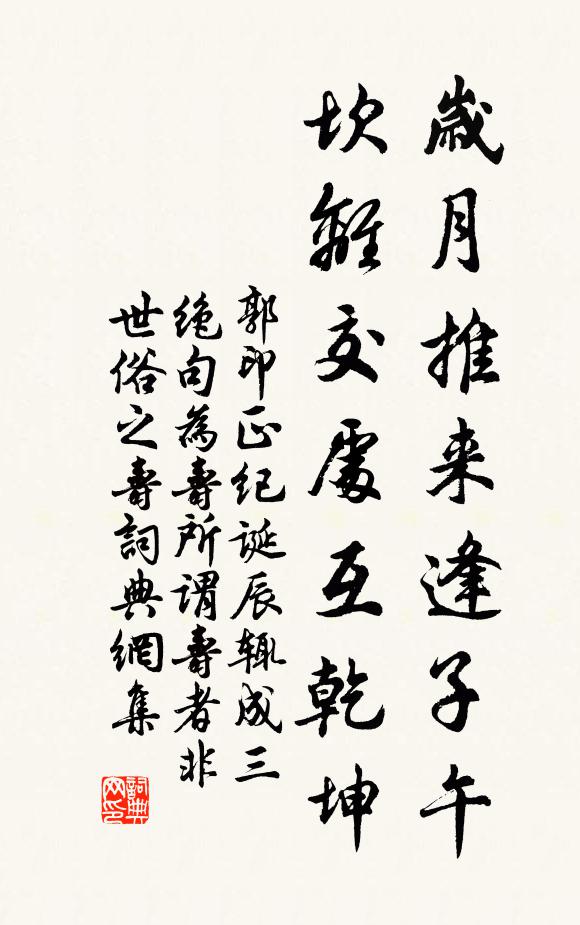 歲月推来逢子午
坎離交處互乾坤
郭印正纪誕辰輒成三
绝句為壽所謂壽者非
世俗之壽詞典網集
詞典网印